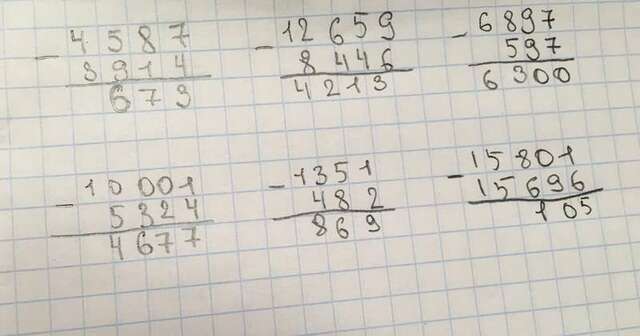 - 4587
3914
673
- 12659
8446
4213
- 6897
597
6300
- 10001
5324
4677
- 1351
482
869
- 15801
15696
105